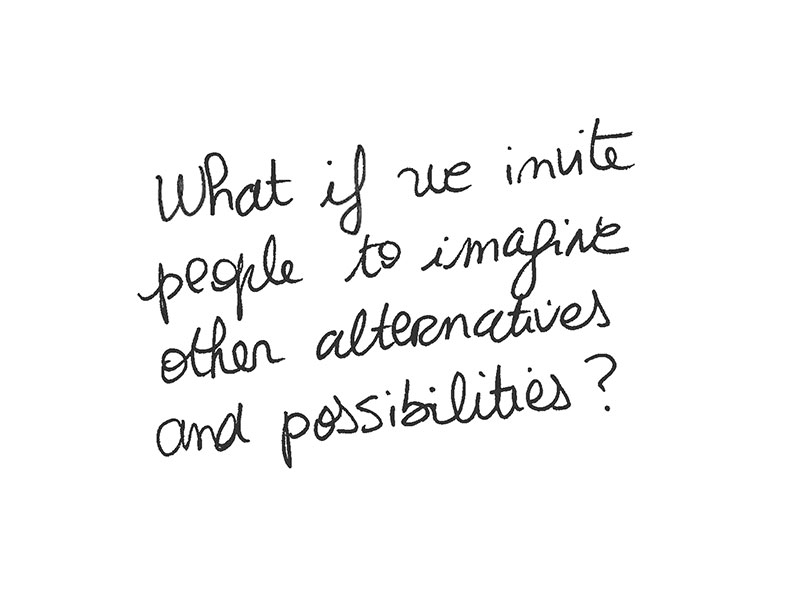 What if we invite
people to imagine
other alternatives
and possibilities ?